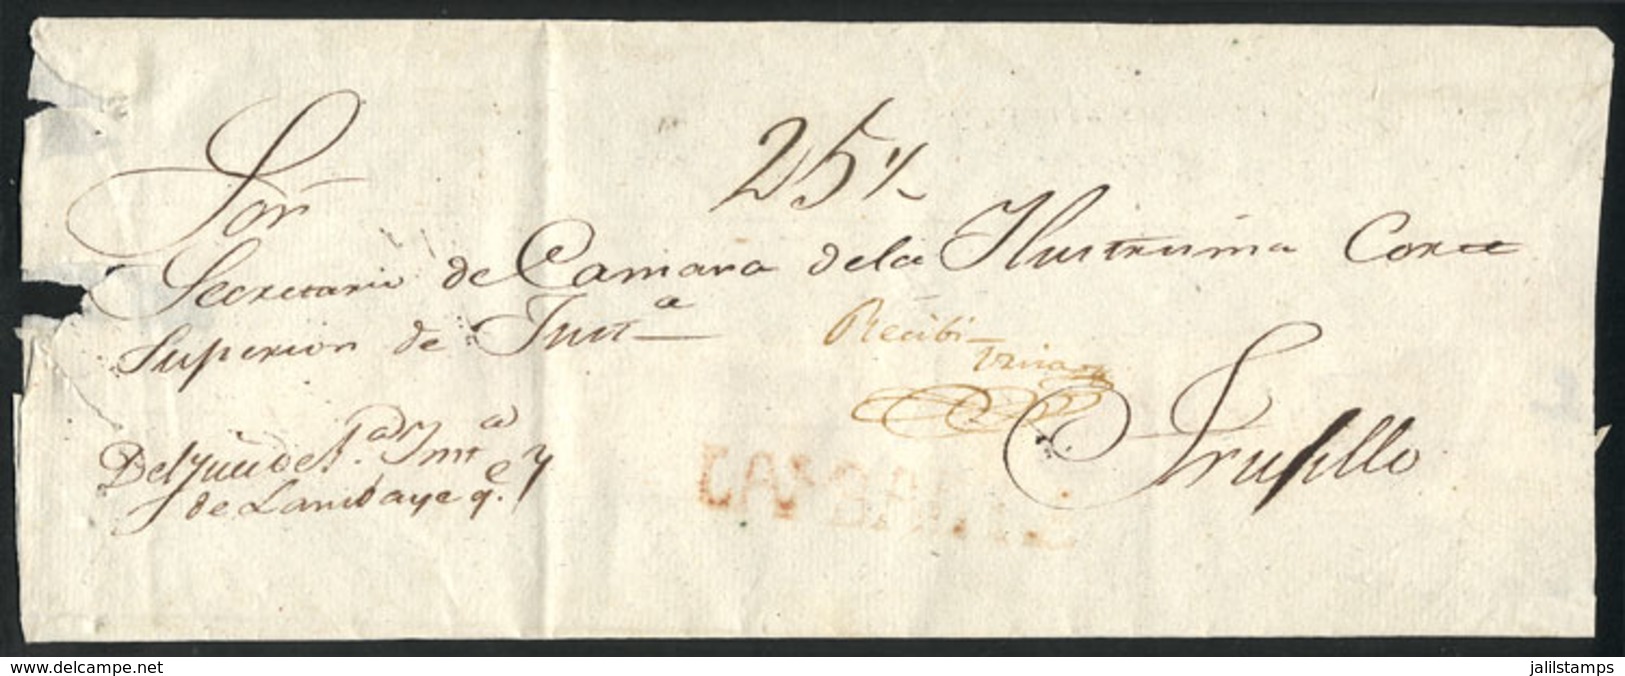 25½
Sor
Secretario de Camara dela Ilustrisima Corte
Superior de Justa
Recibi
Trugillo
Del Juez de
de Lambayeqe
www.delcampe.net
jalilstamps